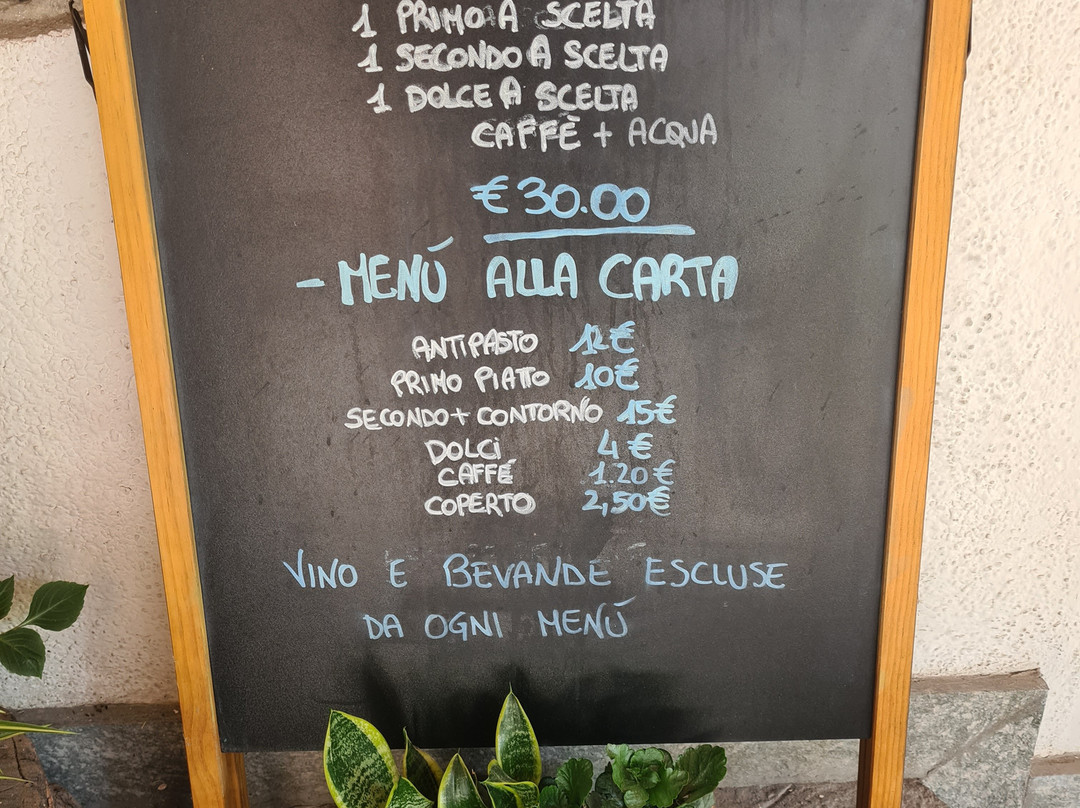 1 PRIMO A SCELTA
1 SECONDO A SCELTA
1 DOLCE A SCELTA
CAFFÈ + ACQUA
€ 30.00
- MENÚ ALLA CARTA
ANTIPASTO 12€
PRIMO PIATTO 10€
SECONDO + CONTORNO 15€
DOLCI 4€
CAFFÉ 1.20€
COPERTO 2,50€
VINO E BEVANDE ESCLUSE
DA OGNI MENÚ